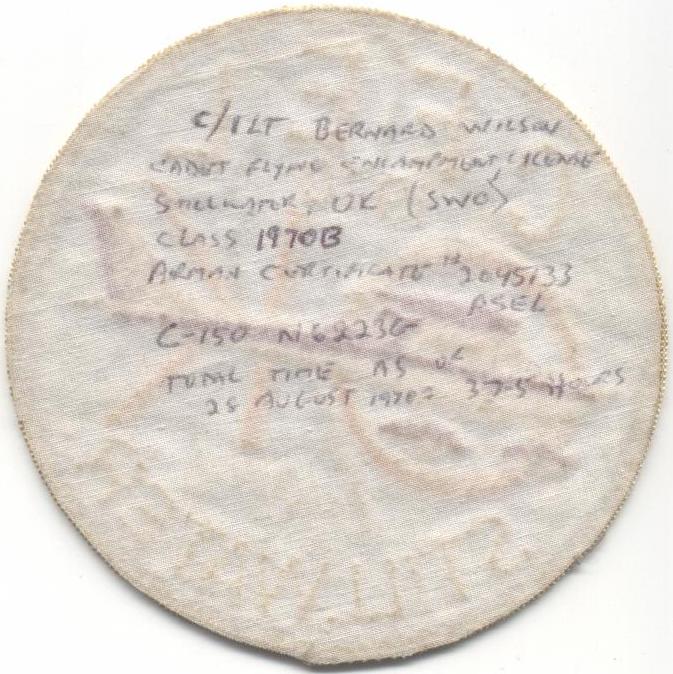 C/1LT BERNARD WILSON
CADET FLYING ENCAMPMENT, LICENSE
STILLWATER, OK (SWO)
CLASS 1970B
AIRMAN CERTIFICATE # 2045133
ASEL
C-150 N6223G
TOTAL TIME AS OF
25 AUGUST 1970: 37.5 HOURS